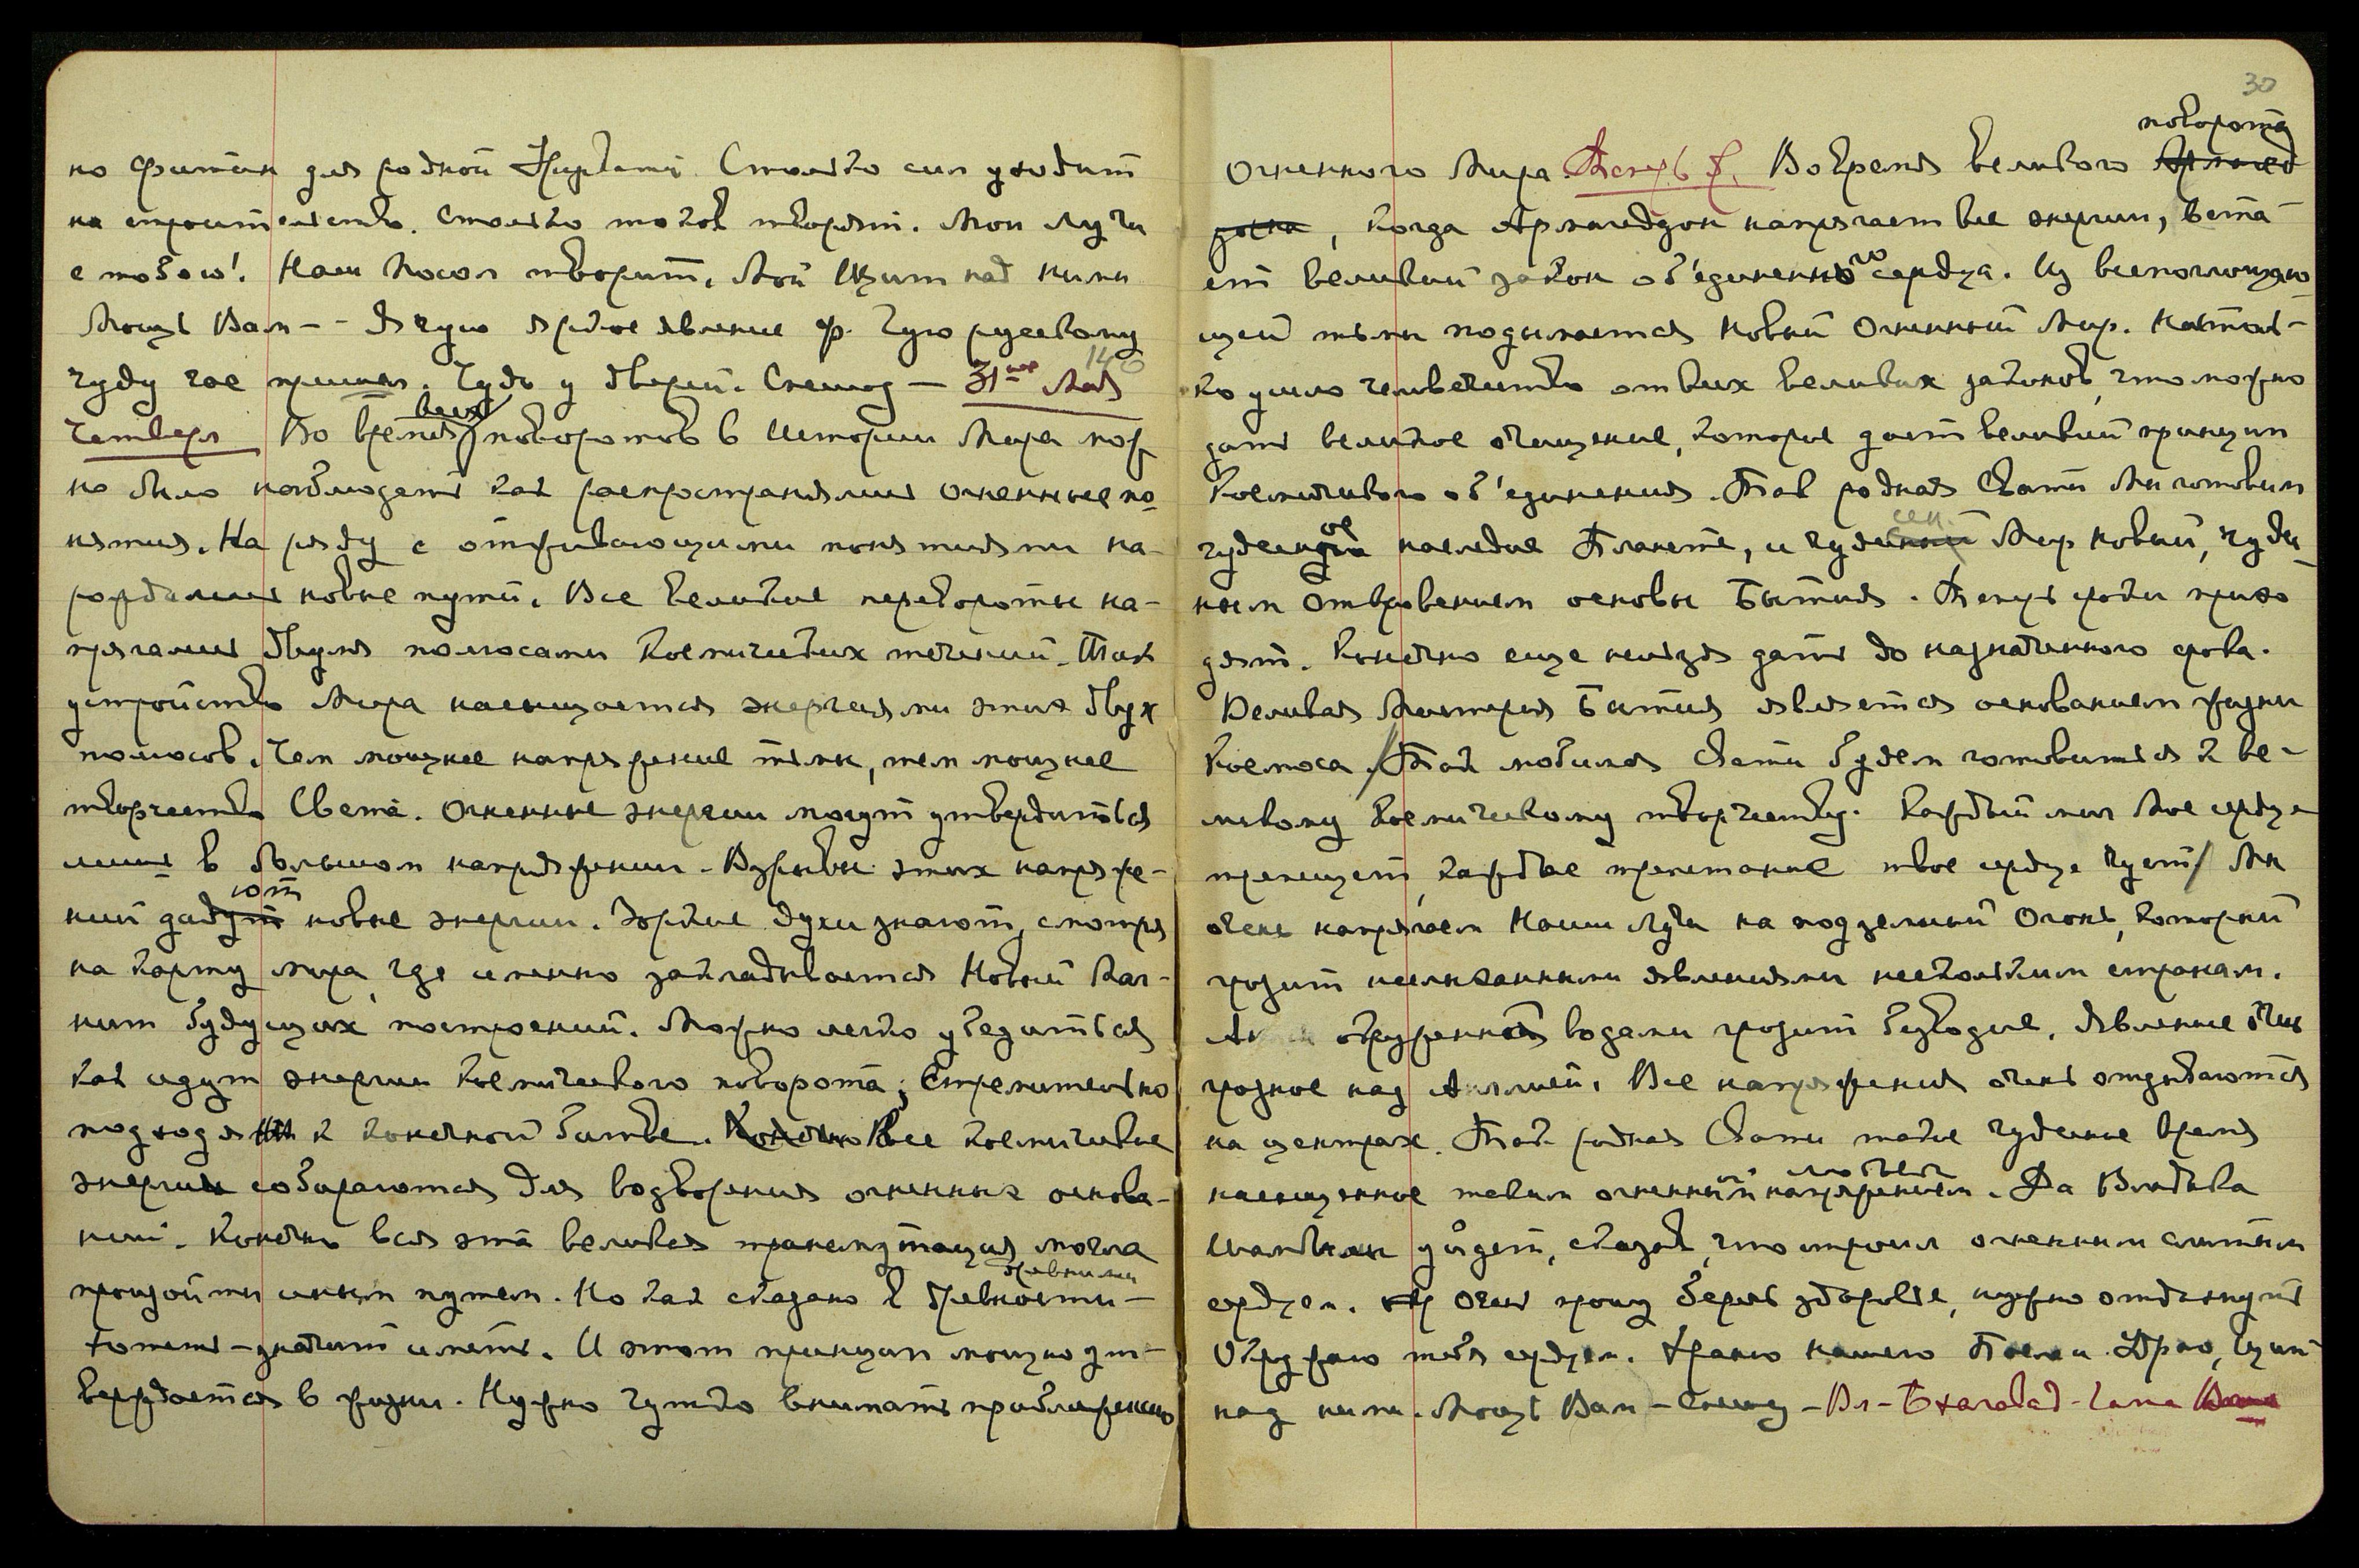 но фитан для родной Нирвати. Столько сил уходит
на строительство. Столько токов творят. Мои Лучи
с тобою! Наш Посол творит. Мой Щит над ними
Мощь Вам -- Я чую яркое явление ф. Чую русскому
чуду час пришел. Чудь у дверей. Спешу — 31-го Мая
140
Четверг Во время вел. поворотов в Истории Мира мож
но было наблюдать как распространялись огненные по
нятия. На ряду с отживающими понятиями на-
рождались новые пути. Все великие перевороты на-
прягались двумя полюсами космических течений. Так
устройство Мира насыщается энергиями этих двух
полюсов. Чем мощнее напряжение тьмы, тем мощнее
творчество Света. Огненные энергии могут утвердиться
лишь в большом напряжении. Взрывы этих напряже-
ний дадут ют новые энергии. Зоркие духи знают, смотря
на карту мира, где именно закладывается Новый Маг-
нит будущих построений. Можно легко убедиться
как идут энергии космического поворота; Стремительно
подходят к конечной битве. Конечно Все космические
энергии собираются для водворения огненных основа-
ний. Конечно вся эта великая трансмутация могла
произойти иным путем. Но как сказано в древности древними —
хотеть – значит иметь. И этот принцип мощно ут-
верждается в жизни. Нужно чутко внимать приближению
30
поворота
Огненного Мира. Теперь ф. Во время великого Армагед
дона, когда Армагеддон напрягает все энергии, вста-
ет великий закон об'единенного сердца. Из всепоглощаю
щей тьмы подымается Новый Огненный Мир. Настоль-
ко ушло человечество от всех великих законов, что можно
дать великое очищение, которое дает великий принцип
Космического об'единения. Так родная Свати Мы готовим
чудесное наследие Планете, и чудесен Мир новый, чуд
ным Откровением основы Бытия. Теперь сроки прихо
дят. Конечно еще нельзя дать до назначенного срока.
Великая Мистерия Бытия является основанием жизни
Космоса. / Так любимая Свати будем готовиться к ве-
ликому Космическому творчеству. Каждый миг Мое сердце
трепещет, каждое трепетание твое сердце чует / Мы
очень напрягаем Наши Лучи на подземный Огонь, который
грозит неслыханными явлениями нескольким странам.
окруженной водами грозит безводие. Явление очень
грозное над Англией. Все напряжения очень отзываются
на центрах. Так родная Свати такое чудесное время
насыщенное таким огненным напряжением любвей. Да Владыка
Шамбалы уйдет, сказав, что строил огненным слитным
сердцем. Очень прошу беречь здоровье, нужно отдохнуть
Окружаю тебя сердцем. Храню нашего Посла и Драо, Щит
над ними. Мощь Вам – Спешу –